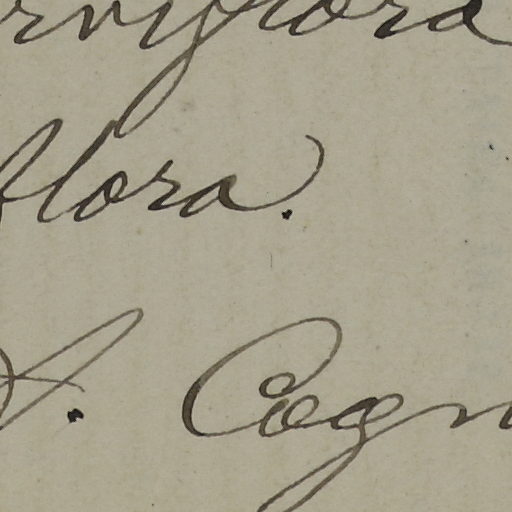 rviflora
flora.
f. Cogn